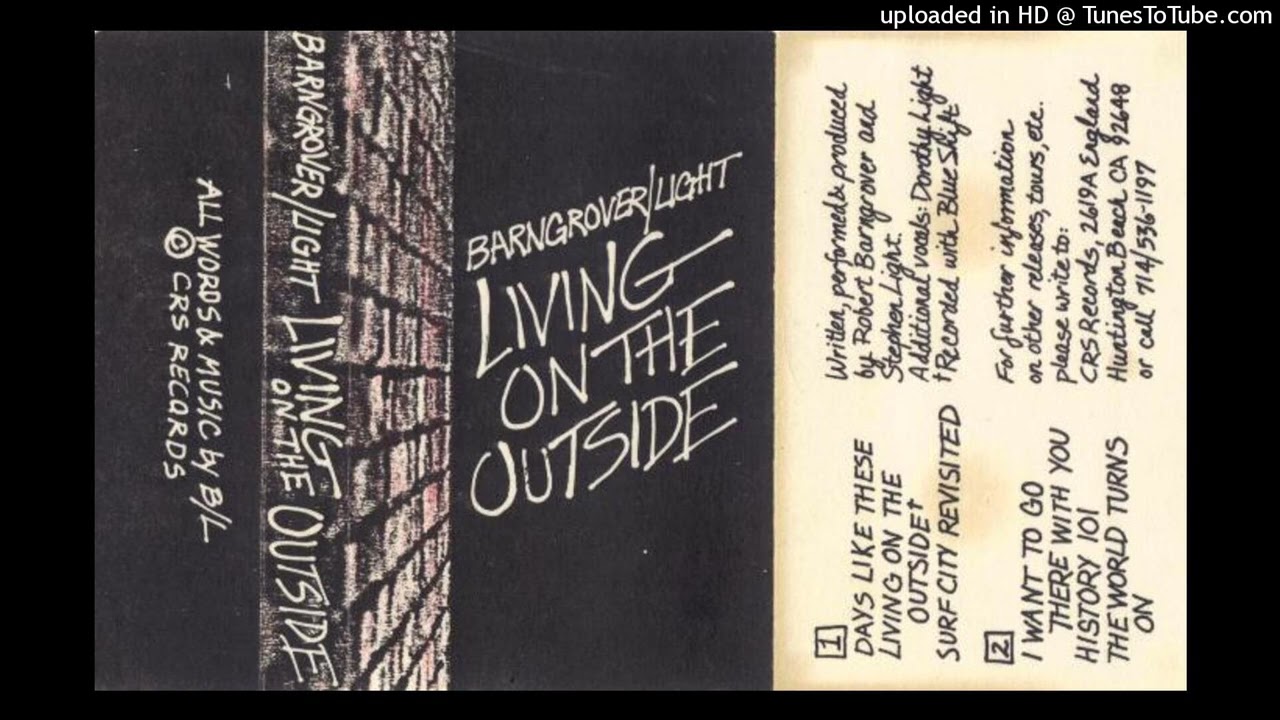 uploaded in HD @ TunesToTube.com
ALL WORDS & MUSIC by B/L
© CRS RECORDS
BARNGROVER/LIGHT LIVING
ON THE OUTSIDE
BARNGROVER/LIGHT
LIVING
ON THE
OUTSIDE
Written, performed & produced
by Robert Barngrover and
Stephen Light.
Additional vocals: Dorothy Light
†Recorded with Blue Shift
For further information
on other releases, tours, etc.
please write to:
CRS Records, 2619A England
Huntington Beach CA 92648
or call 714/536-1197
1
DAYS LIKE THESE
LIVING ON THE
OUTSIDE†
SURF CITY REVISITED
2
I WANT TO GO
THERE WITH YOU
HISTORY 101
THE WORLD TURNS
ON